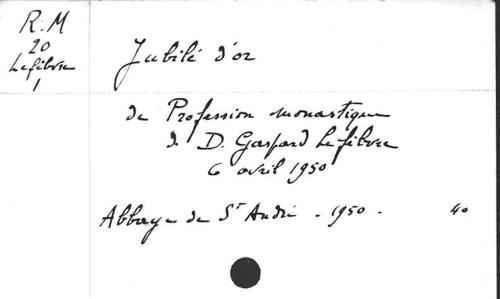 R.M
20
Lefebvre
1
Jubilé d'or
de Profession monastique
de D. Gaspard Lefebvre
6 avril 1950
Abbaye de St André - 1950 - 40